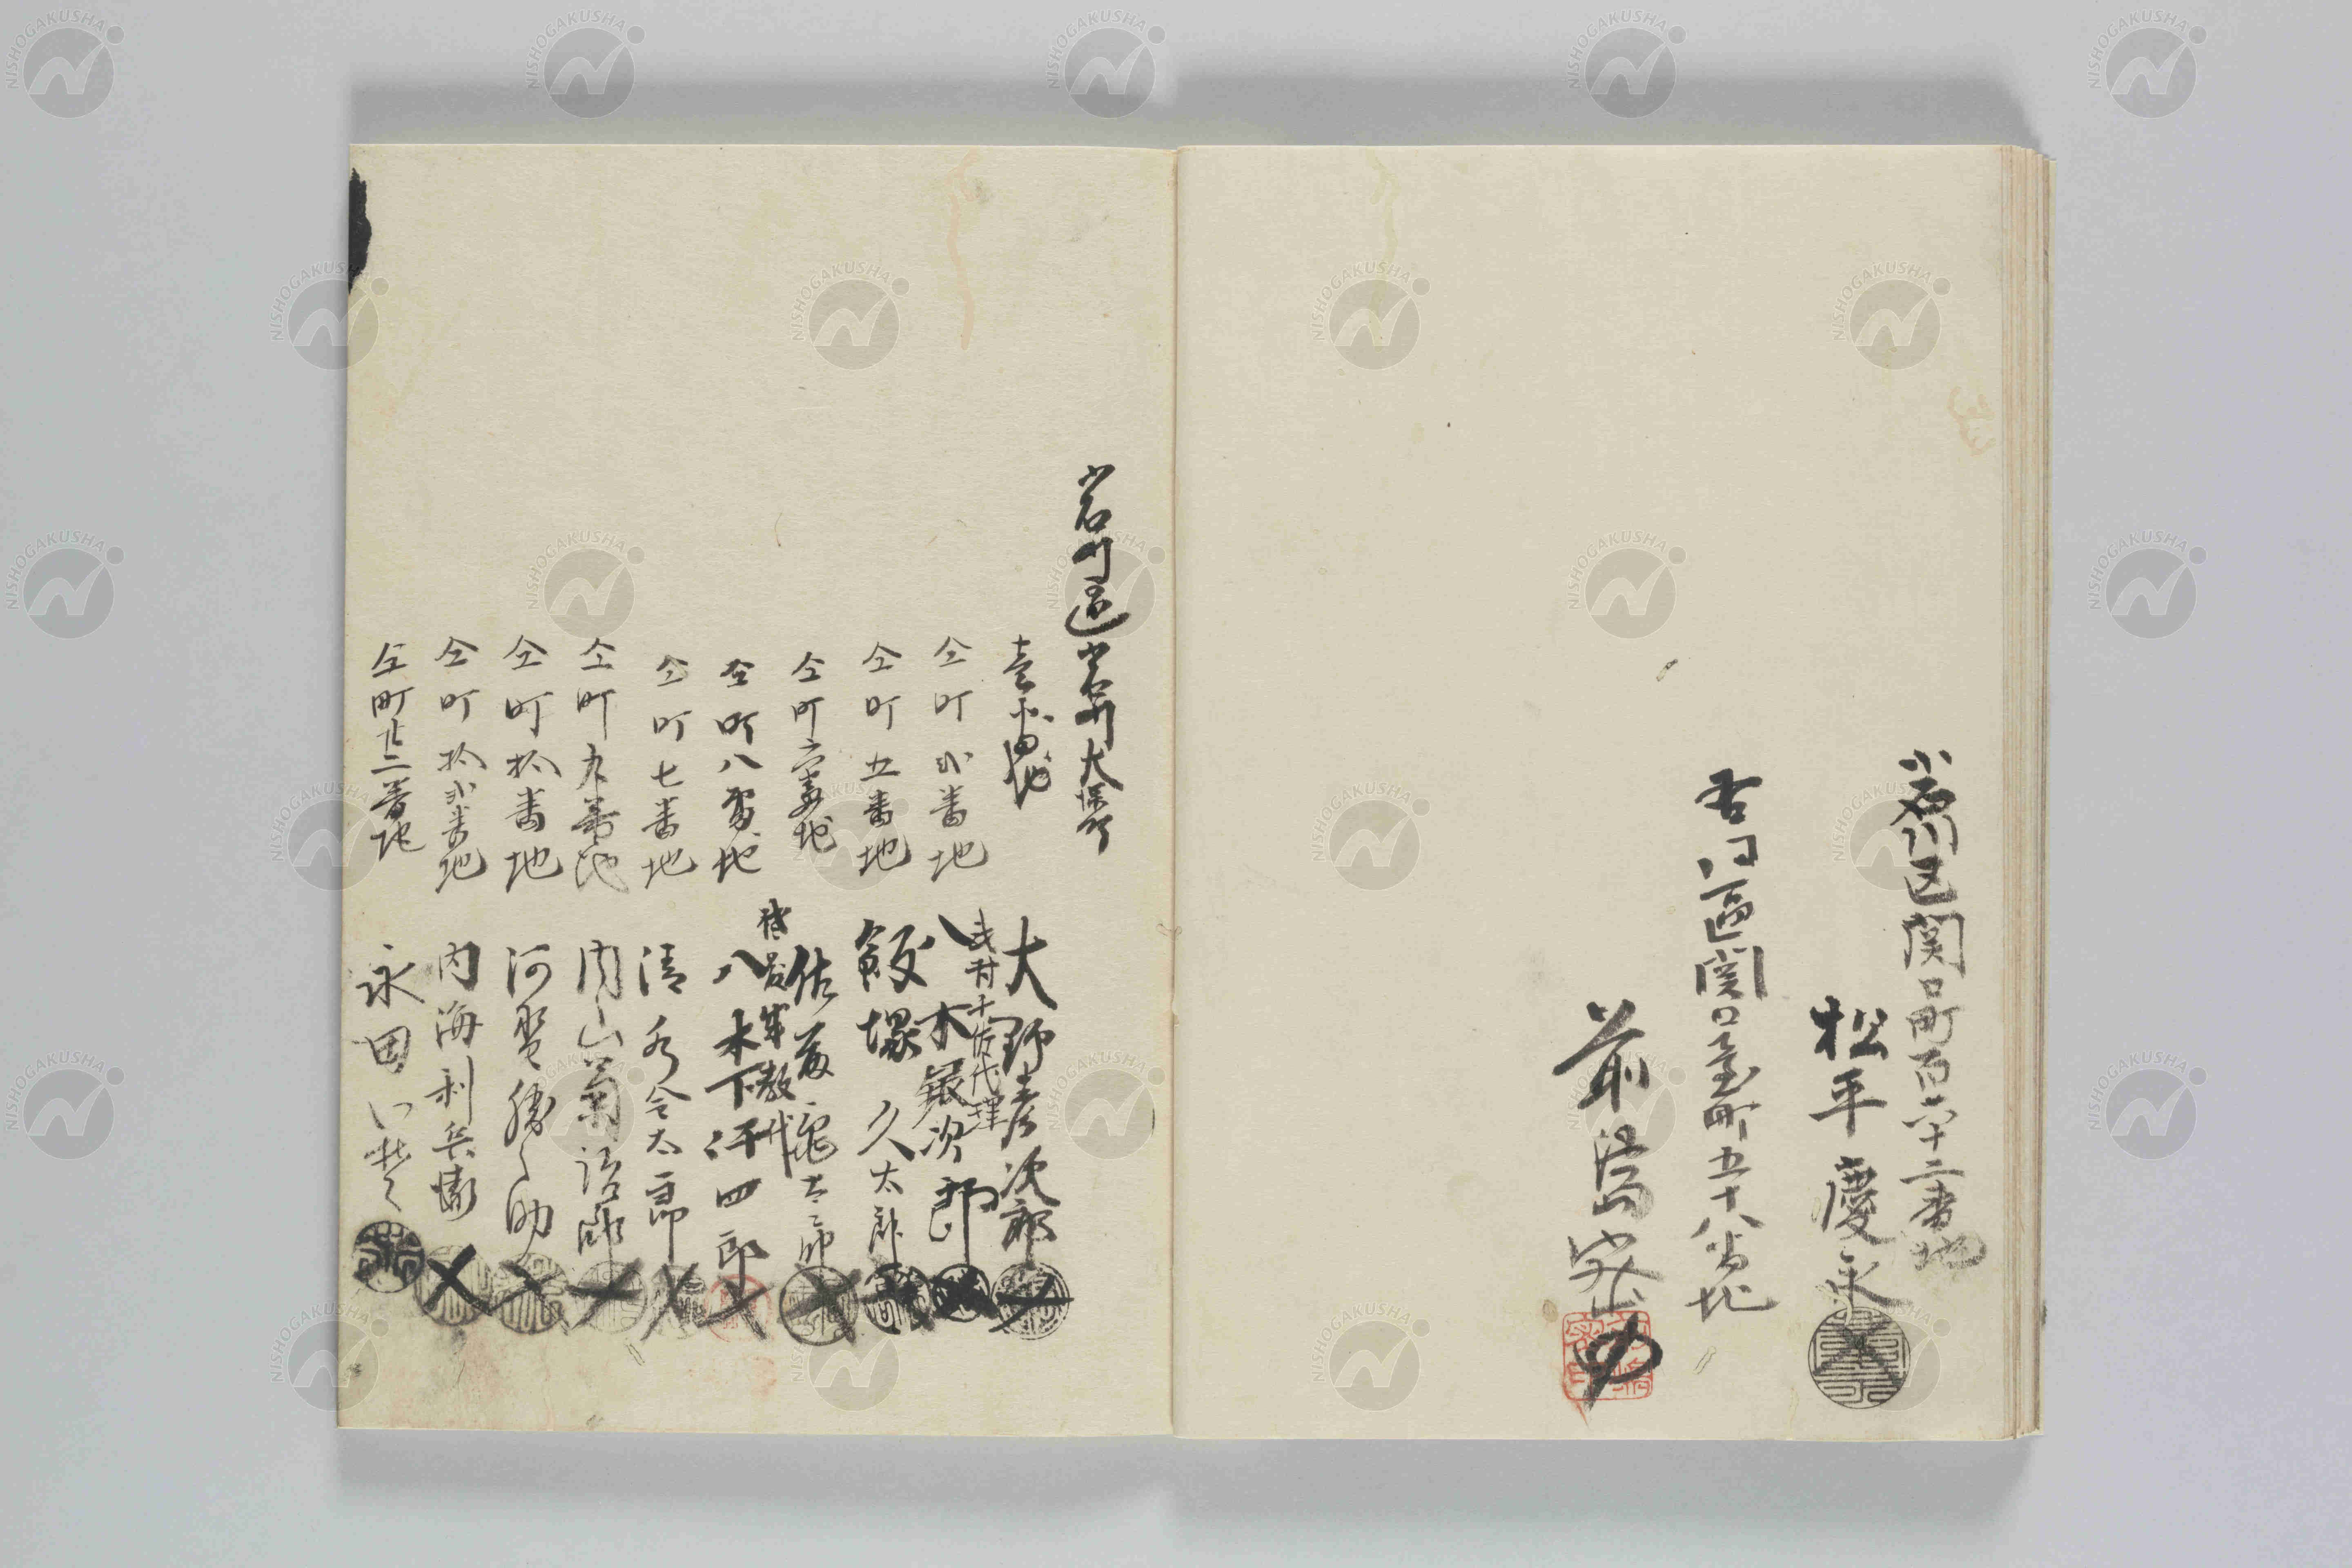 小石川区関口町百六十二番地
松平慶永
牛込區関口臺町五十八番地
前島密
小石川區小石川大塚町
壱番地
大野彦次郎
仝町弐番地
八木銀次郎
仝町五番地
飯塚久太郎
仝町六番地
佐藤亀太郎
仝町八番地
八木下仁四郎
仝町七番地
清水金太郎
仝町九番地
内山菊治郎
仝町拾番地
河野勝之助
仝町拾弐番地
内海利兵衛
仝町廿二番地
永田
NISHOGAKUSHA